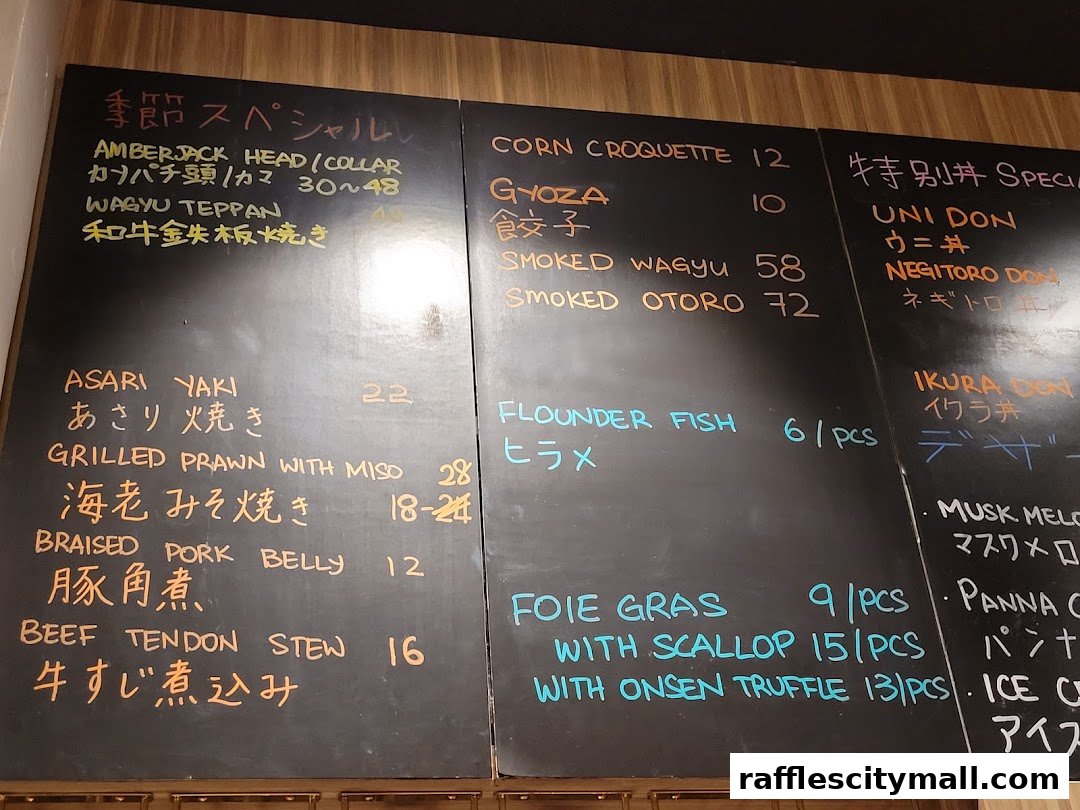 季節スペシャル
AMBERJACK HEAD/COLLAR
カンパチ頭/カマ 30~48
WAGYU TEPPAN 40
和牛鉄板焼き
ASARI YAKI 22
あさり焼き
GRILLED PRAWN WITH MISO 28
海老みそ焼き 18-24
BRAISED PORK BELLY 12
豚角煮
BEEF TENDON STEW 16
牛すじ煮込み
CORN CROQUETTE 12
GYOZA 10
餃子
SMOKED WAGYU 58
SMOKED OTORO 72
FLOUNDER FISH 6/PCS
ヒラメ
FOIE GRAS 9/PCS
WITH SCALLOP 15/PCS
WITH ONSEN TRUFFLE 13/PCS
特別丼 SPECIA
UNI DON
ウニ丼
NEGITORO DON
ネギトロ丼
IKURA DON
イクラ丼
デザー
· MUSK MELO
マスクメロ
· PANNA C
パンナ
· ICE C
アイス
rafflescitymall.com